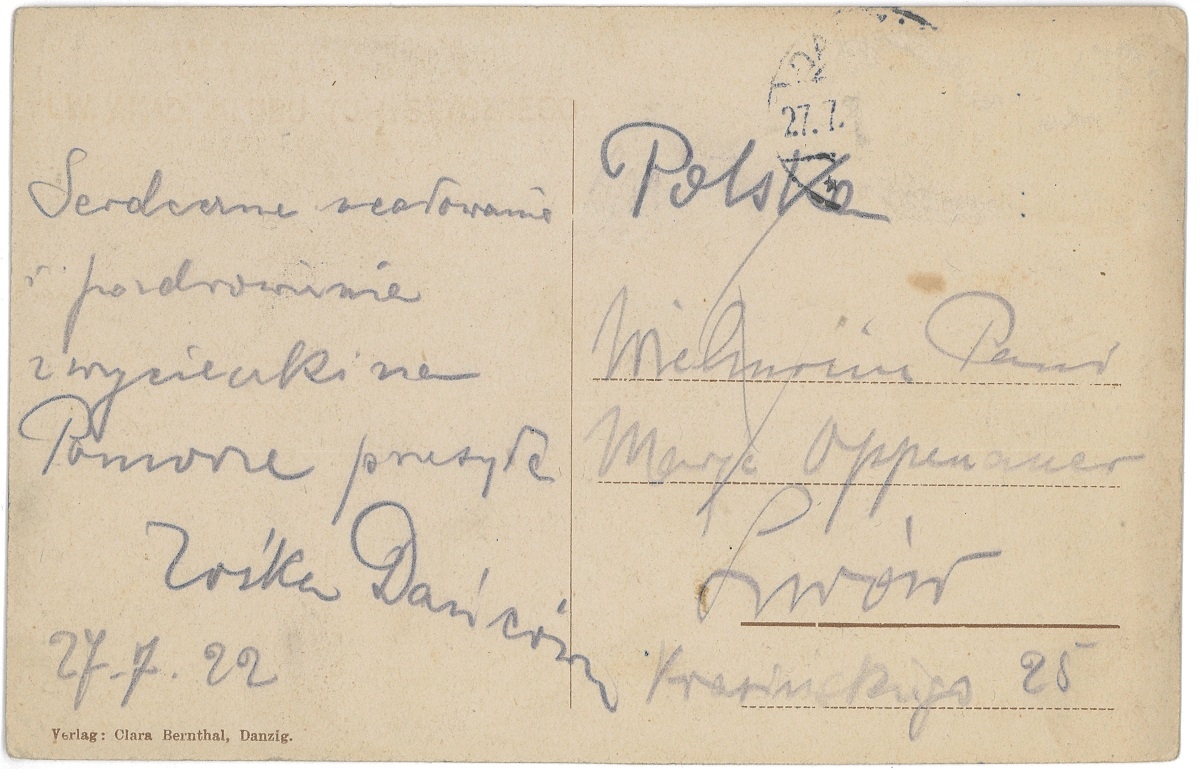 Serdeczne ucałowania
i pozdrowienia
z wycieczki na
Pomorze przesyła
Zośka
27.7.22
Verlag: Clara Bernthal, Danzig.
27.7.
Polska
Wielmożna Pani
Marya Oppenauer
Lwów
Krasickiego 25